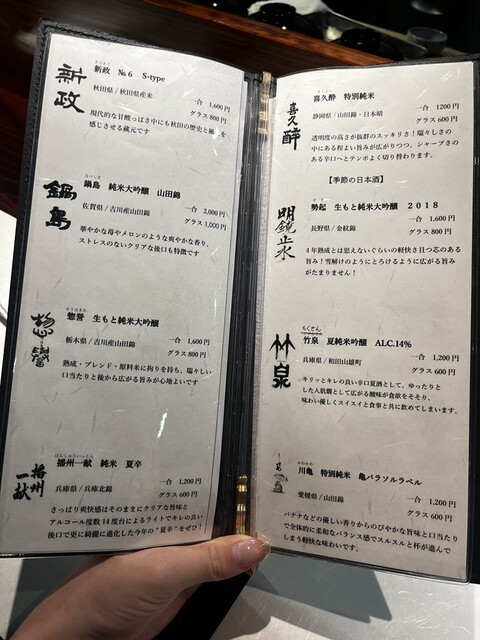 新政
あらまさ
新政 №6 S-type
秋田県/秋田県産米
一合 1,600円
グラス 800円
現代的な甘酸っぱさ中にも秋田の歴史と風土を
感じさせる蔵元です
鍋島
なべしま
鍋島 純米大吟醸 山田錦
佐賀県/吉川産山田錦
一合 2,000円
グラス 1,000円
華やかな苺やメロンのような爽やかな香り、
ストレスのないクリアな後口も特徴です
惣譽
そうほまれ
惣誉 生もと純米大吟醸
栃木県/吉川産山田錦
一合 1,600円
グラス 800円
熟成・ブレンド・原料米に拘りを持ち、瑞々しい
口当たりと後から広がる旨みが心地よいです
播州一献
ばんしゅういっこん
播州一献 純米 夏辛
兵庫県/兵庫北錦
一合 1,200円
グラス 600円
さっぱり爽快感はそのままにクリアな旨味と
アルコール度数14度台によるライトでキレの良い
後口で更に綺麗に進化した今年の"夏辛"をぜひ!
喜久醉
きくよい
喜久酔 特別純米
静岡県/山田錦・日本晴
一合 1200円
グラス 600円
透明度の高さが抜群のスッキリさ!瑞々しさの
中にある程よい旨みが広がりつつ、シャープさの
ある辛口へとテンポよく切り替わります。
【季節の日本酒】
明鏡止水
勢起 生もと純米大吟醸 2018
長野県/金紋錦
一合 1,600円
グラス 800円
4年熟成とは思えないぐらいの軽快さ且つ芯のある
旨み!雪解けのようにとろけるように広がる旨み
がたまりません!
竹泉
ちくせん
竹泉 夏純米吟醸 ALC.14%
兵庫県/和田山雄町
一合 1,200円
グラス 600円
キリッとキレの良い辛口夏酒として、ゆったりと
した人肌燗として広がる酸味が食欲をそそり、
味わい優しくスイスイと食事と共に飲めてしまいます。
かわかめ
川亀 特別純米 亀パラソルラベル
愛媛県/山田錦
一合 1,200円
グラス 600円
バナナなどの優しい香りからのびやかな旨味と口当た
りで全体的に柔和なバランス感でスルスルと杯が進んで
しまう軽快な味わいです。